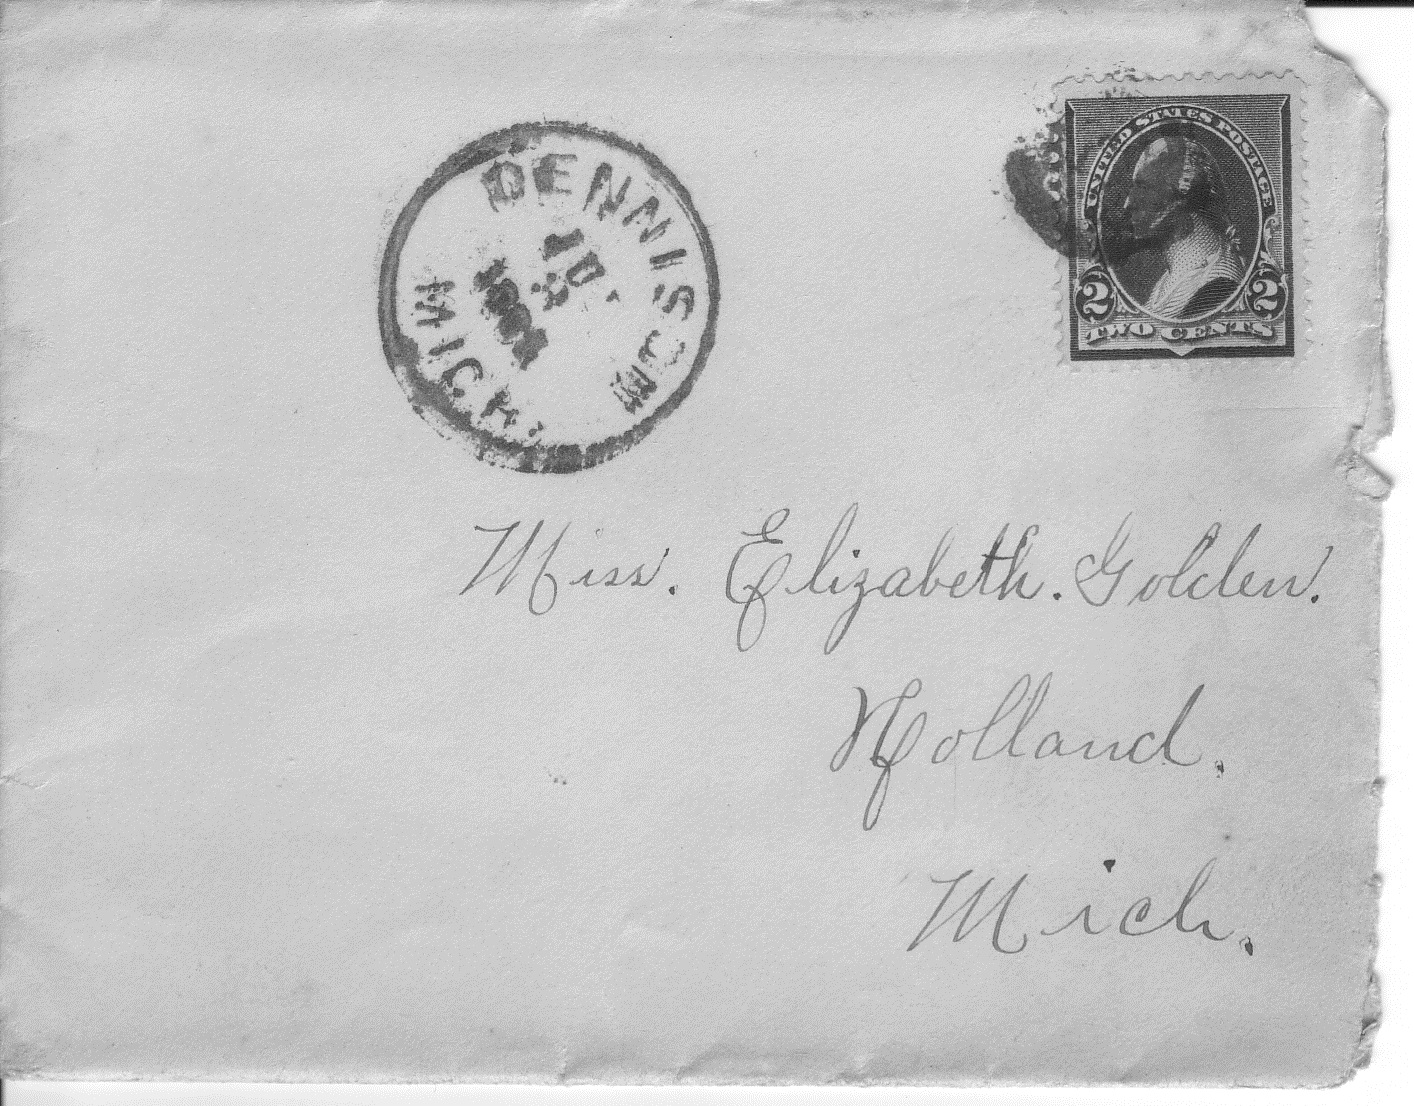 DENNISON
MICH.
UNITED STATES POSTAGE
2 2
TWO CENTS
Miss. Elizabeth. Golden.
Holland.
Mich.